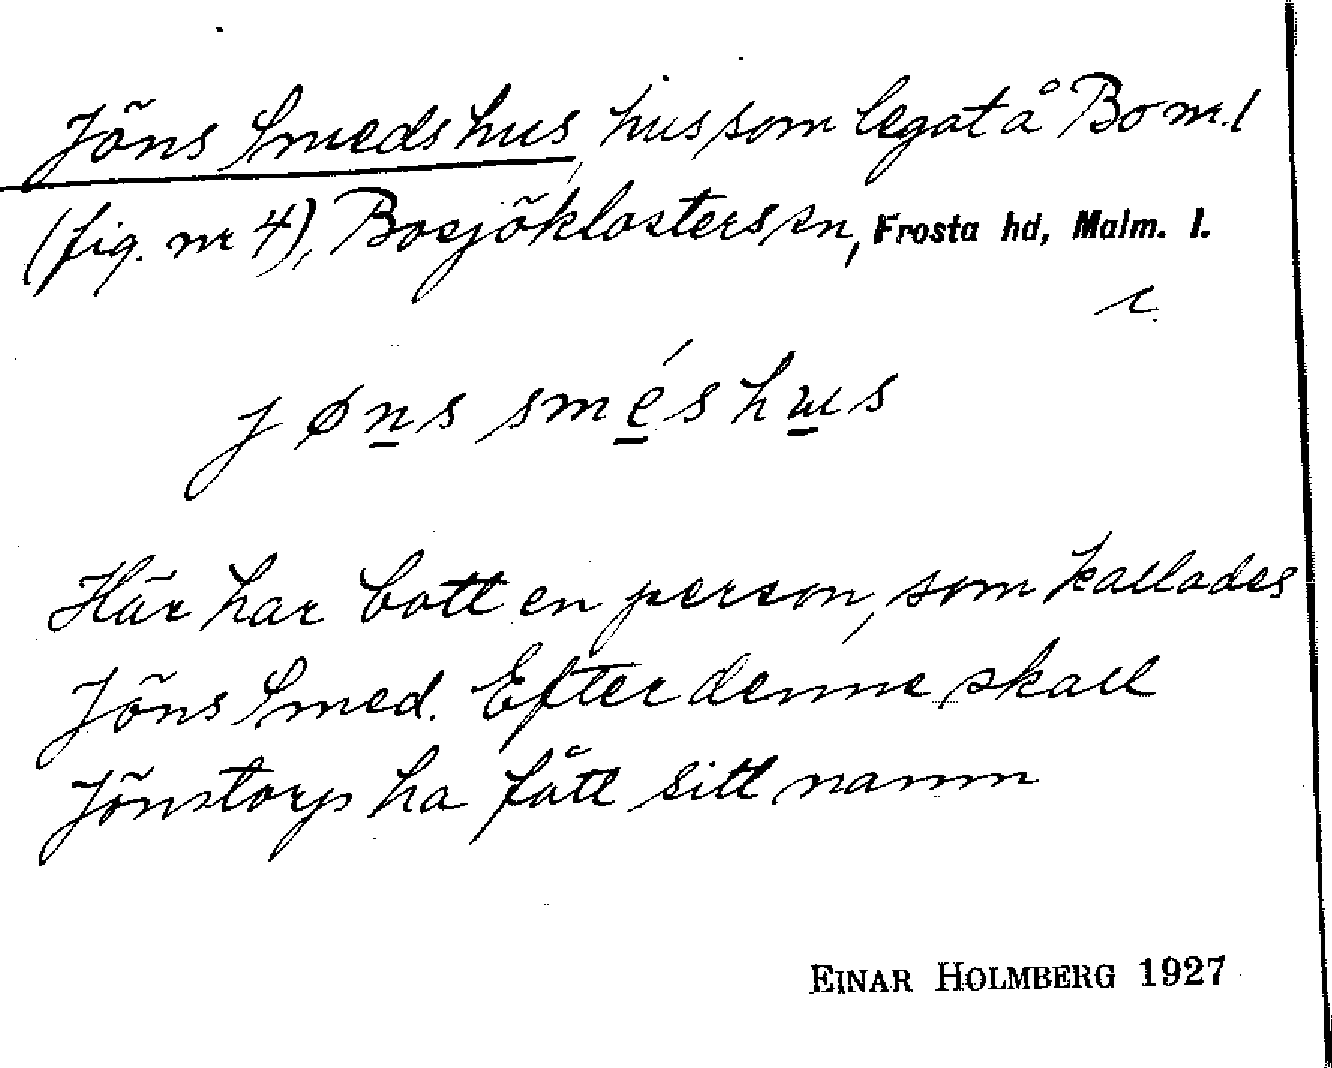 Jöns Smedshus, hus som legat å Bo nr 1
(fig. nr 4), Bosjöklosters sn, Frosta hd, Malm. l.
jøns sméshus
Här har bott en person, som kallades
Jöns Smed. Efter denne skall
Jönstorp ha fått sitt namn
EINAR HOLMBERG 1927